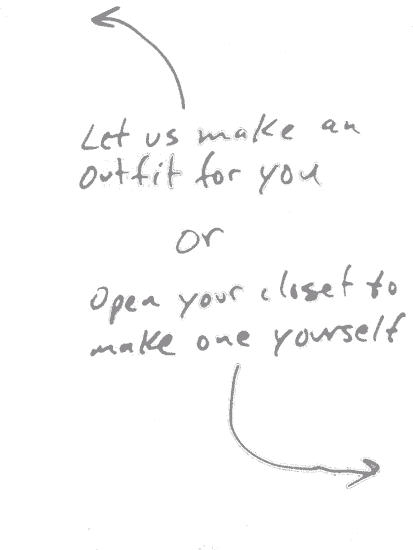 Let us make an
Outfit for you
Or
Open your closet to
make one yourself